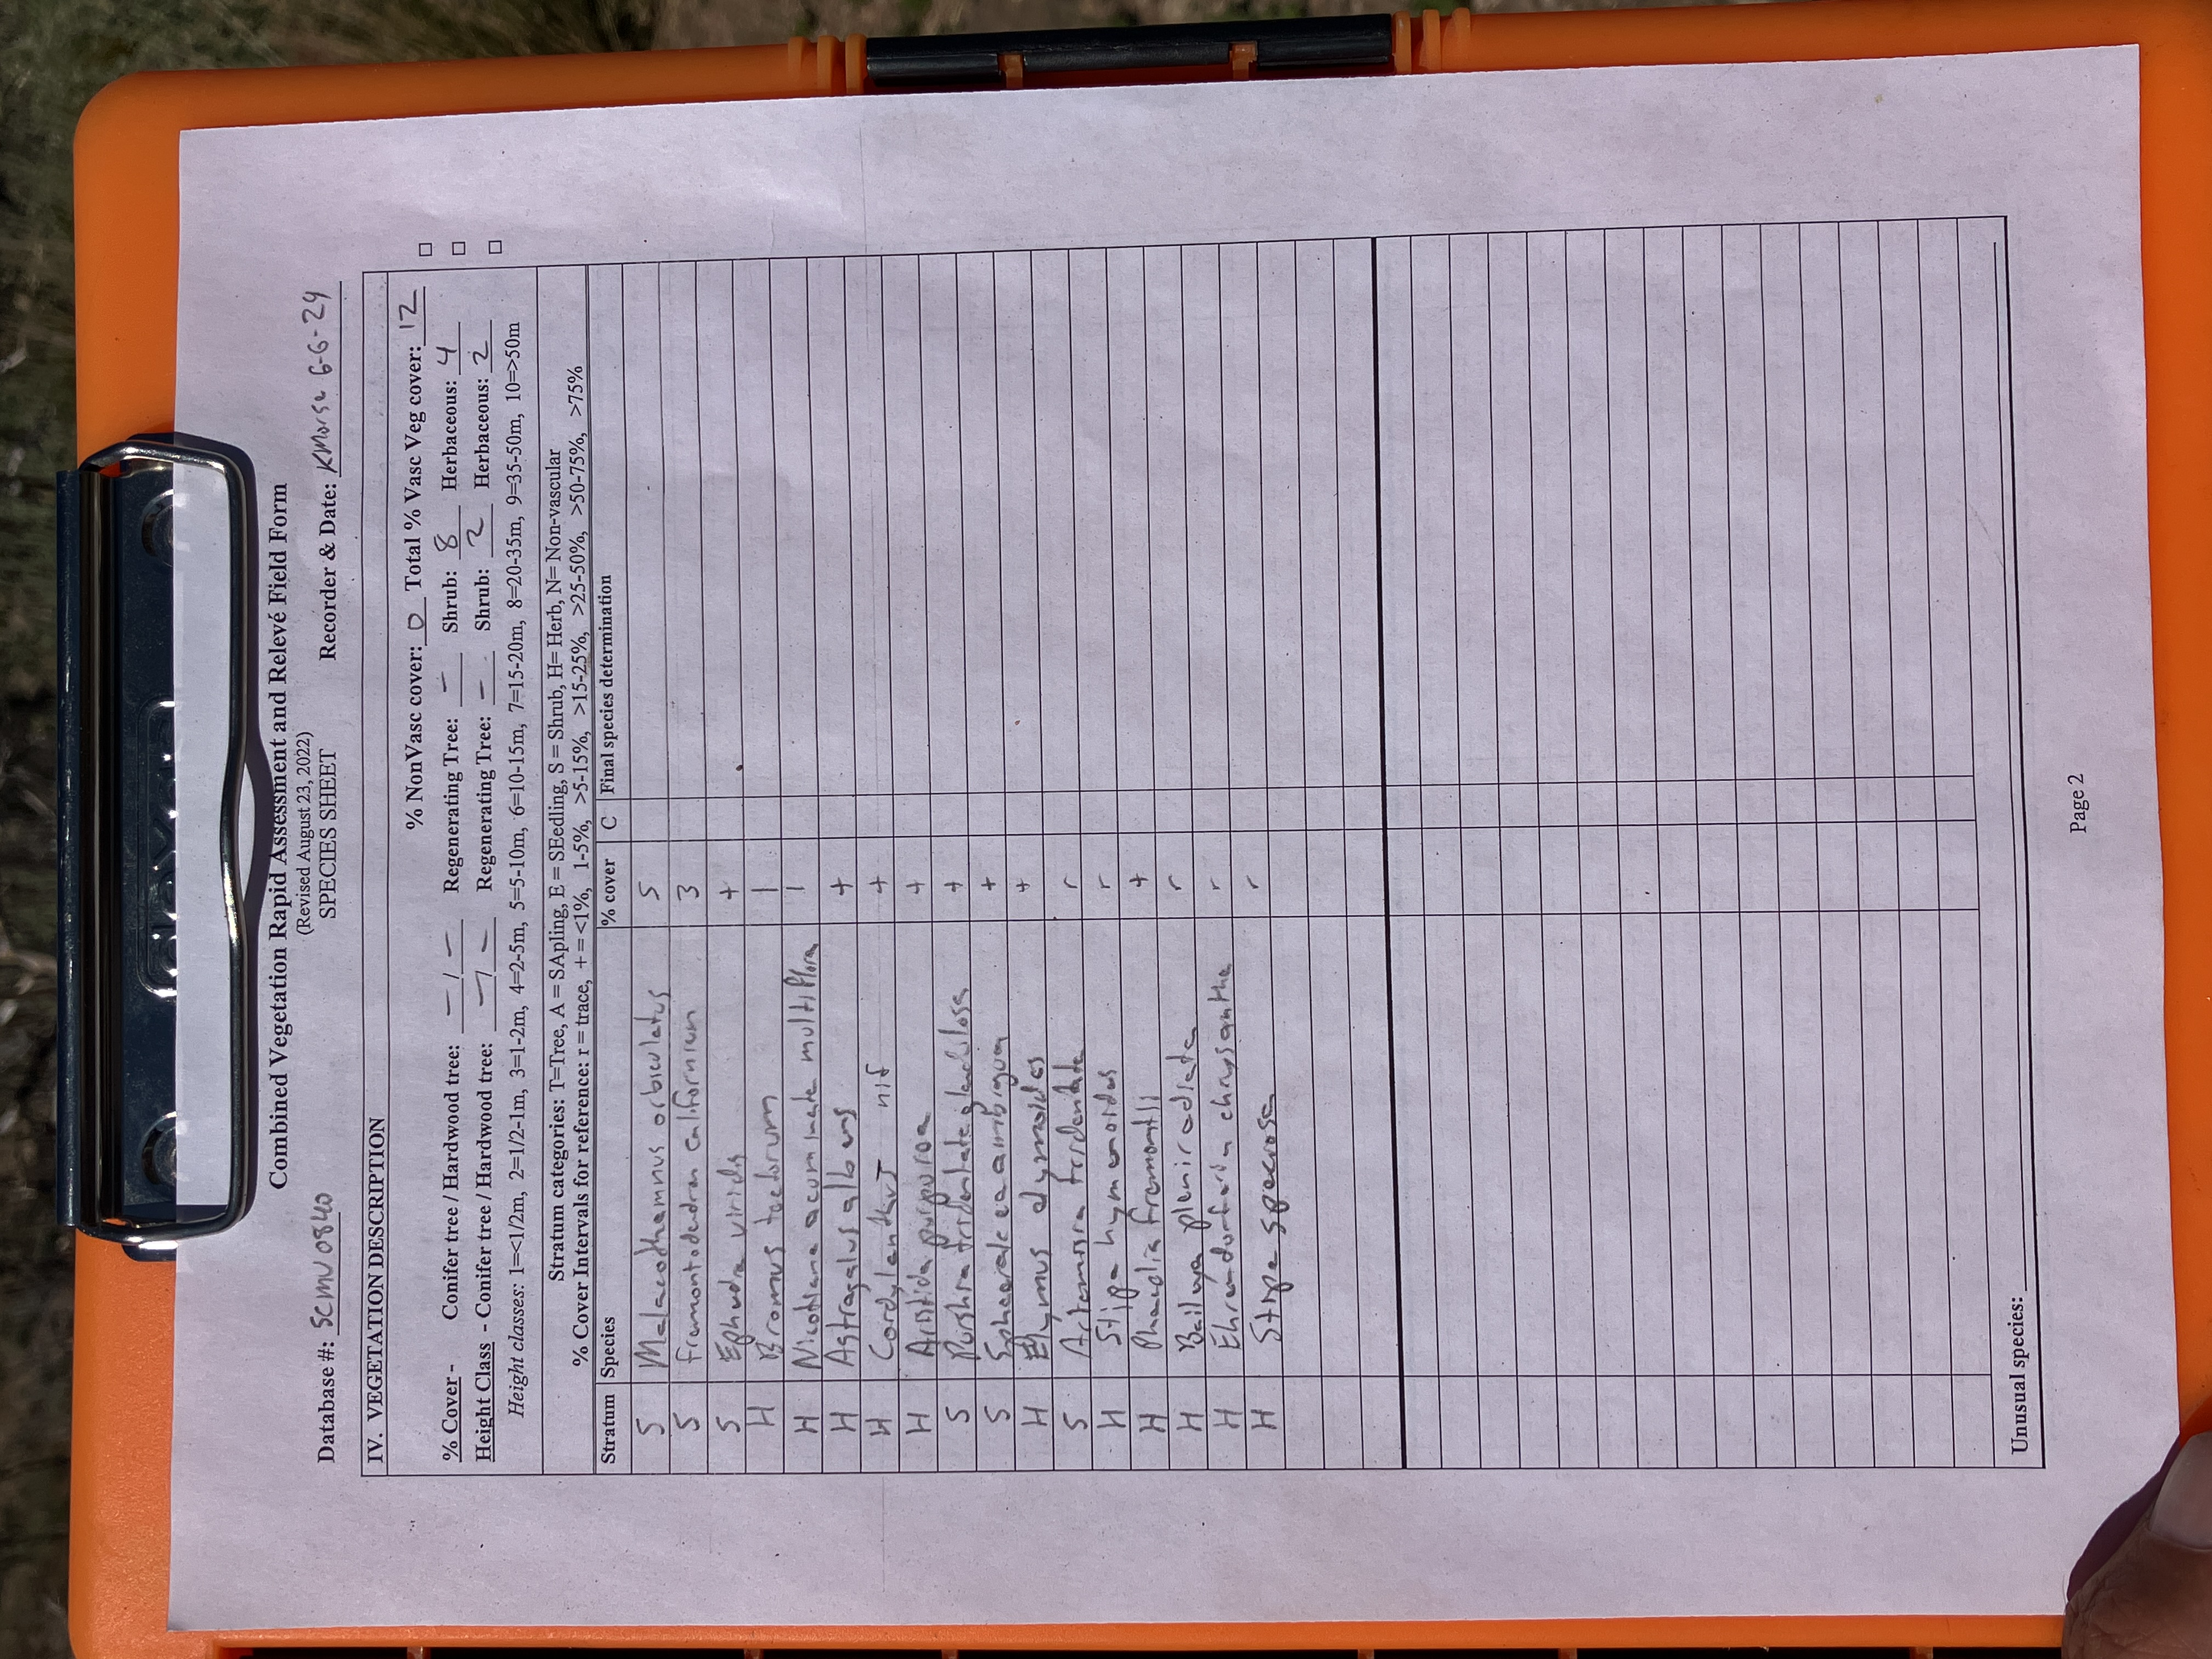 Combined Vegetation Rapid Assessment and Relevé Field Form
(Revised August 23, 2022)
Database #: SCMU0840 SPECIES SHEET Recorder & Date: KMorse 6-6-24
IV. VEGETATION DESCRIPTION
% NonVasc cover: 0 Total % Vasc Veg cover: 12 □
% Cover - Conifer tree / Hardwood tree: - / - Regenerating Tree: - Shrub: 8 Herbaceous: 4 □
Height Class - Conifer tree / Hardwood tree: - / - Regenerating Tree: - Shrub: 2 Herbaceous: 2 □
Height classes: 1=<1/2m, 2=1/2-1m, 3=1-2m, 4=2-5m, 5=5-10m, 6=10-15m, 7=15-20m, 8=20-35m, 9=35-50m, 10=>50m
Stratum categories: T=Tree, A = SApling, E = SEedling, S = Shrub, H= Herb, N= Non-vascular
% Cover Intervals for reference: r = trace, + = <1%, 1-5%, >5-15%, >15-25%, >25-50%, >50-75%, >75%
Stratum Species % cover C Final species determination
S Malacothamnus orbiculatus 5
S Fremontodendron californicum 3
S Ephedra viridis +
H Bromus tectorum 1
H Nicotiana acuminata multiflora 1
H Astragalus albens +
H Cordylanthus nif +
H Aristida purpurea +
S Purshia tridentata glandulosa +
S Sphaeralcea ambigua +
H Elymus elymoides +
S Artemisia tridentata r
H Stipa hymenoides r
H Phacelia fremontii +
H Baileya pleniradiata r
H Ehrendorferia chrysantha r
H Stipa speciosa r
Unusual species:
Page 2